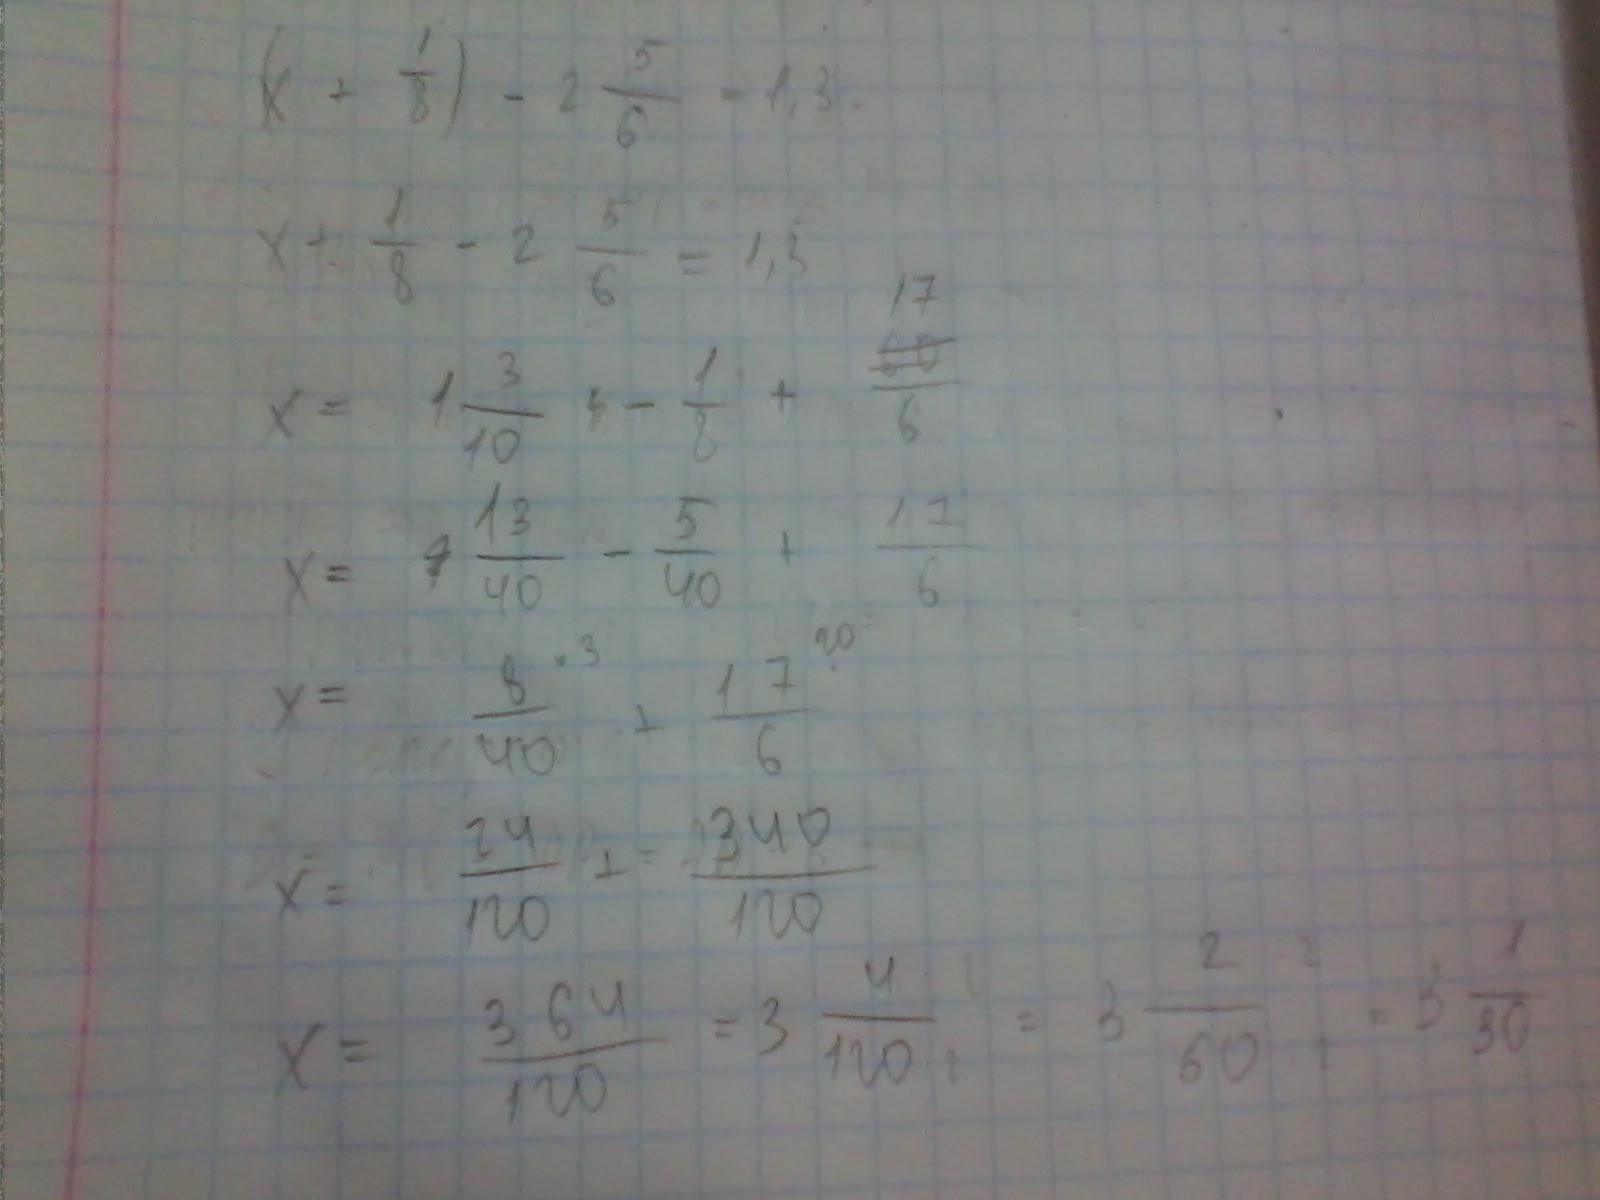 (x + 1/8) - 2 5/6 = 1,3
x + 1/8 - 2 5/6 = 1,3
x = 1 3/10 - 1/8 + 17/6
x = 13/40 - 5/40 + 17/6
x = 8/40 ·3 + 17/6 20
x = 24/120 + 340/120
x = 364/120 = 3 4/120 = 3 2/60 = 3 1/30